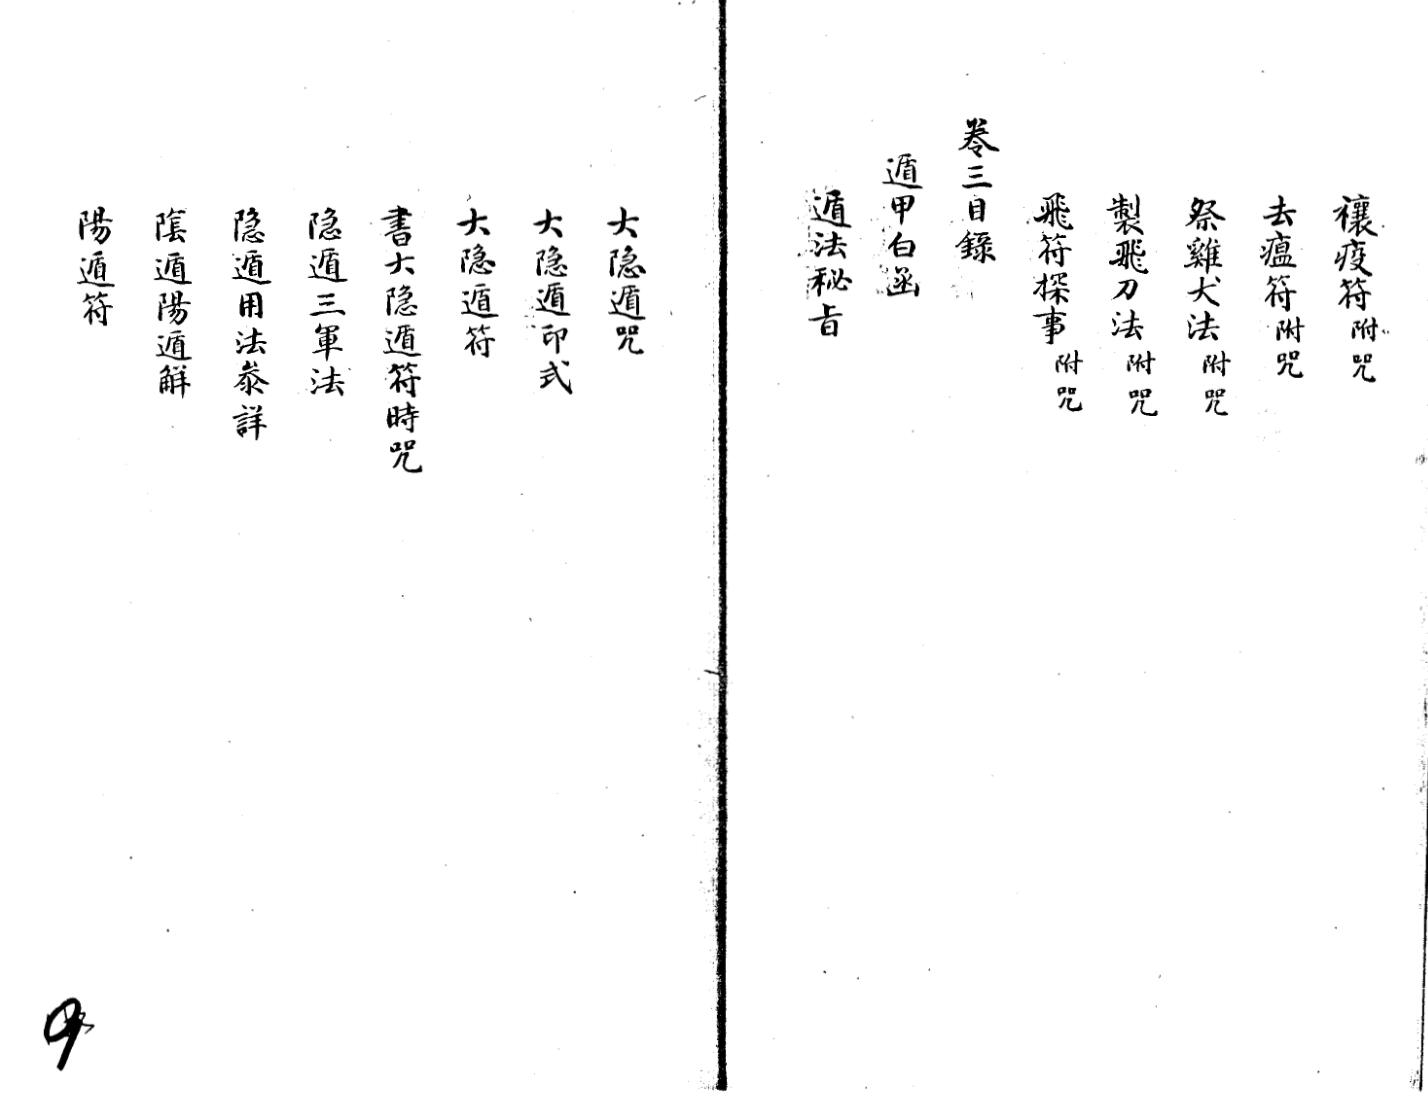 禳疫符附咒
去瘟符附咒
祭雞犬法附咒
製飛刀法附咒
飛符探事附咒
卷三目錄
遁甲白函
遁法秘旨
大隐遁咒
大隐遁印式
大隐遁符
書大隐遁符時咒
隐遁三軍法
隐遁用法叅詳
隂遁陽遁解
陽遁符
9